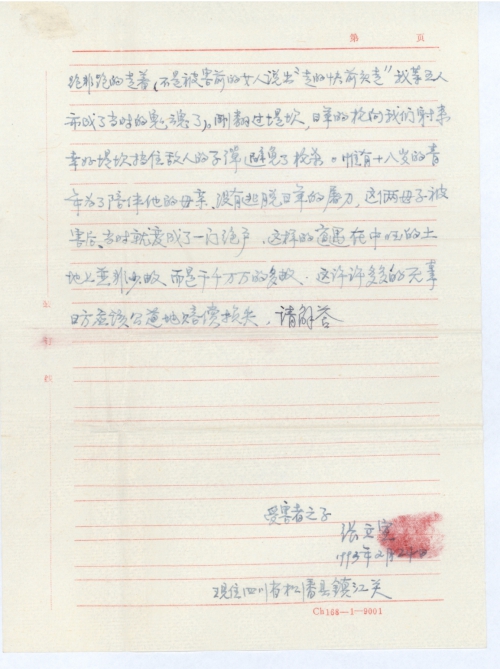 第 页
跑非跑的走着，不是被害前的女人说出"走的快前负走"我等五人
亦成了当时的鬼魂了。刚翻过堤坎，日军的枪向我们射来
幸好堤坎挡住敌人的子弹避免了枪杀。惟有十八岁的青
年为了陪伴他的母亲、没有逃脱日军的暴力，这两母子被
害后、当时就变成了一门绝户，这样的遭遇在中国的土
地上并非少数，而是千千万万的多数。这许许多多的无辜
日方应该公道地赔偿损失，请解答
受害者之子
张文
1993年2月27日
现住四川省松潘县镇江关
Ch186-1-9001